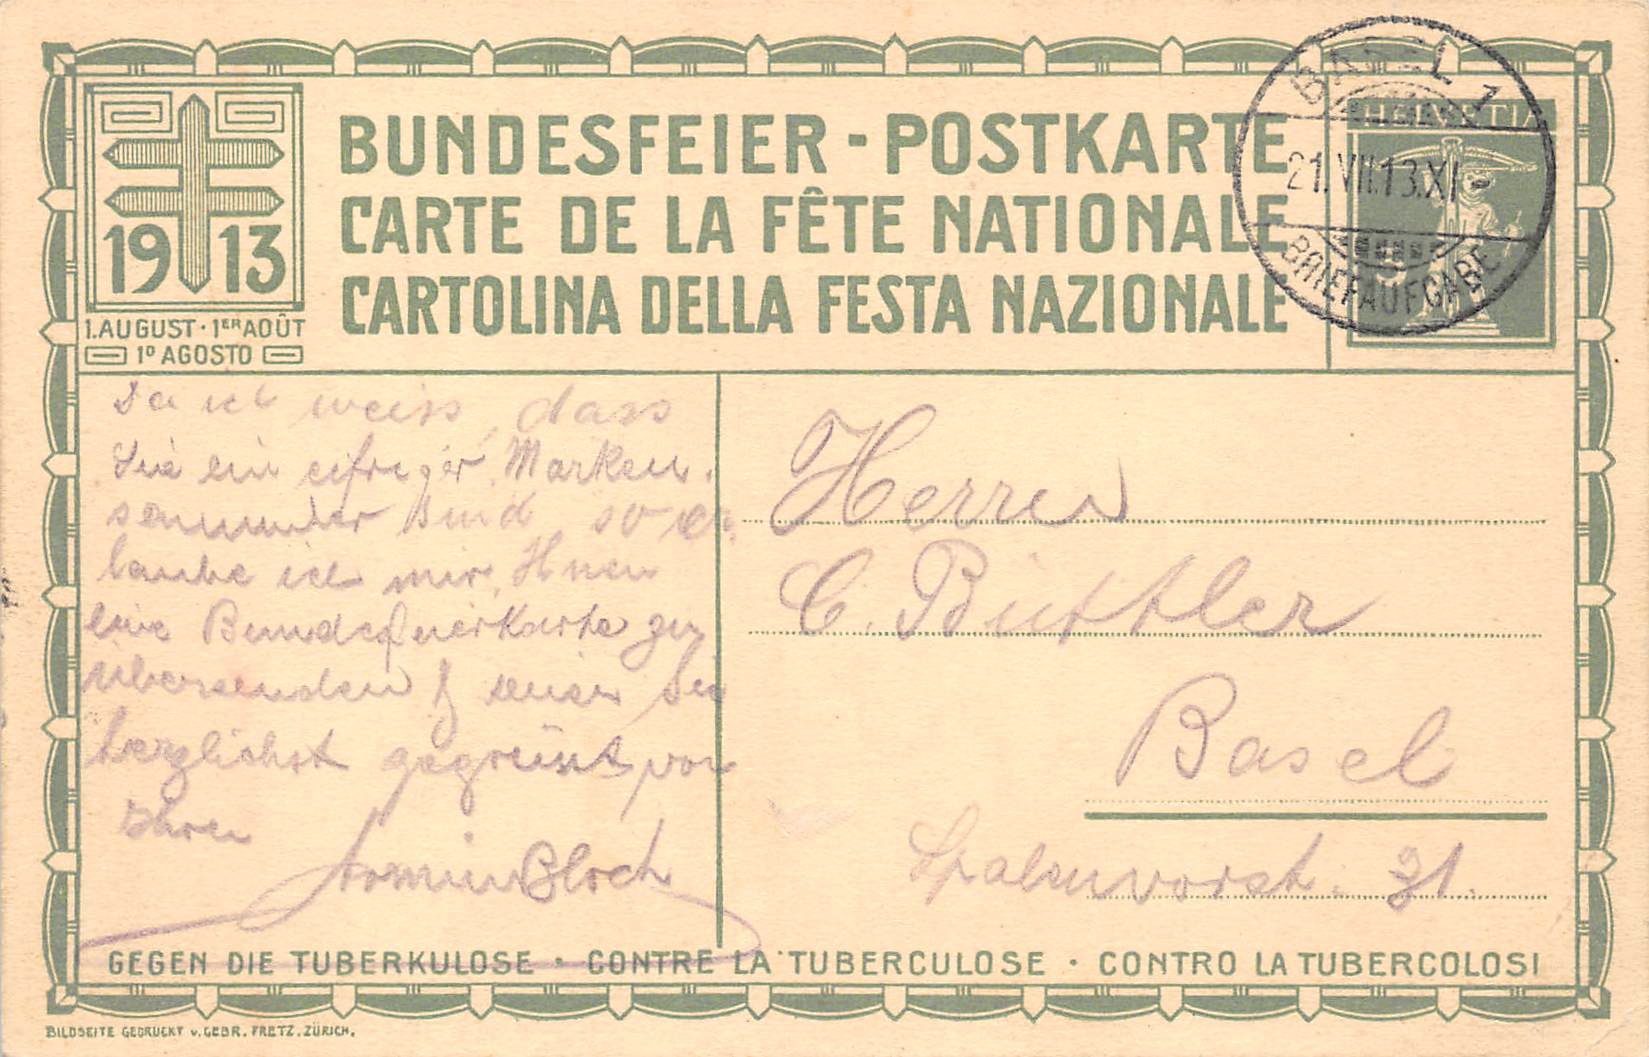 BUNDESFEIER - POSTKARTE
CARTE DE LA FÊTE NATIONALE
CARTOLINA DELLA FESTA NAZIONALE
19 13
1. AUGUST · 1ER AOÛT
1º AGOSTO
HELVETIA
BASEL 1
21.VII.13.XI-
BRIEFAUFGABE
Da ich weiss, dass
Sie ein eifriger Marken-
sammler sind, so er-
laube ich mir, Ihnen
eine Bundesfeierkarte zu
übersenden & seien Sie
herzlichst gegrüsst von
Ihren
Armin Bloch
Herren
C. Büttler
Basel
Spalenvorst. 31.
GEGEN DIE TUBERKULOSE · CONTRE LA TUBERCULOSE · CONTRO LA TUBERCOLOSI
BILDSEITE GEDRUCKT v. GEBR. FRETZ. ZÜRICH.